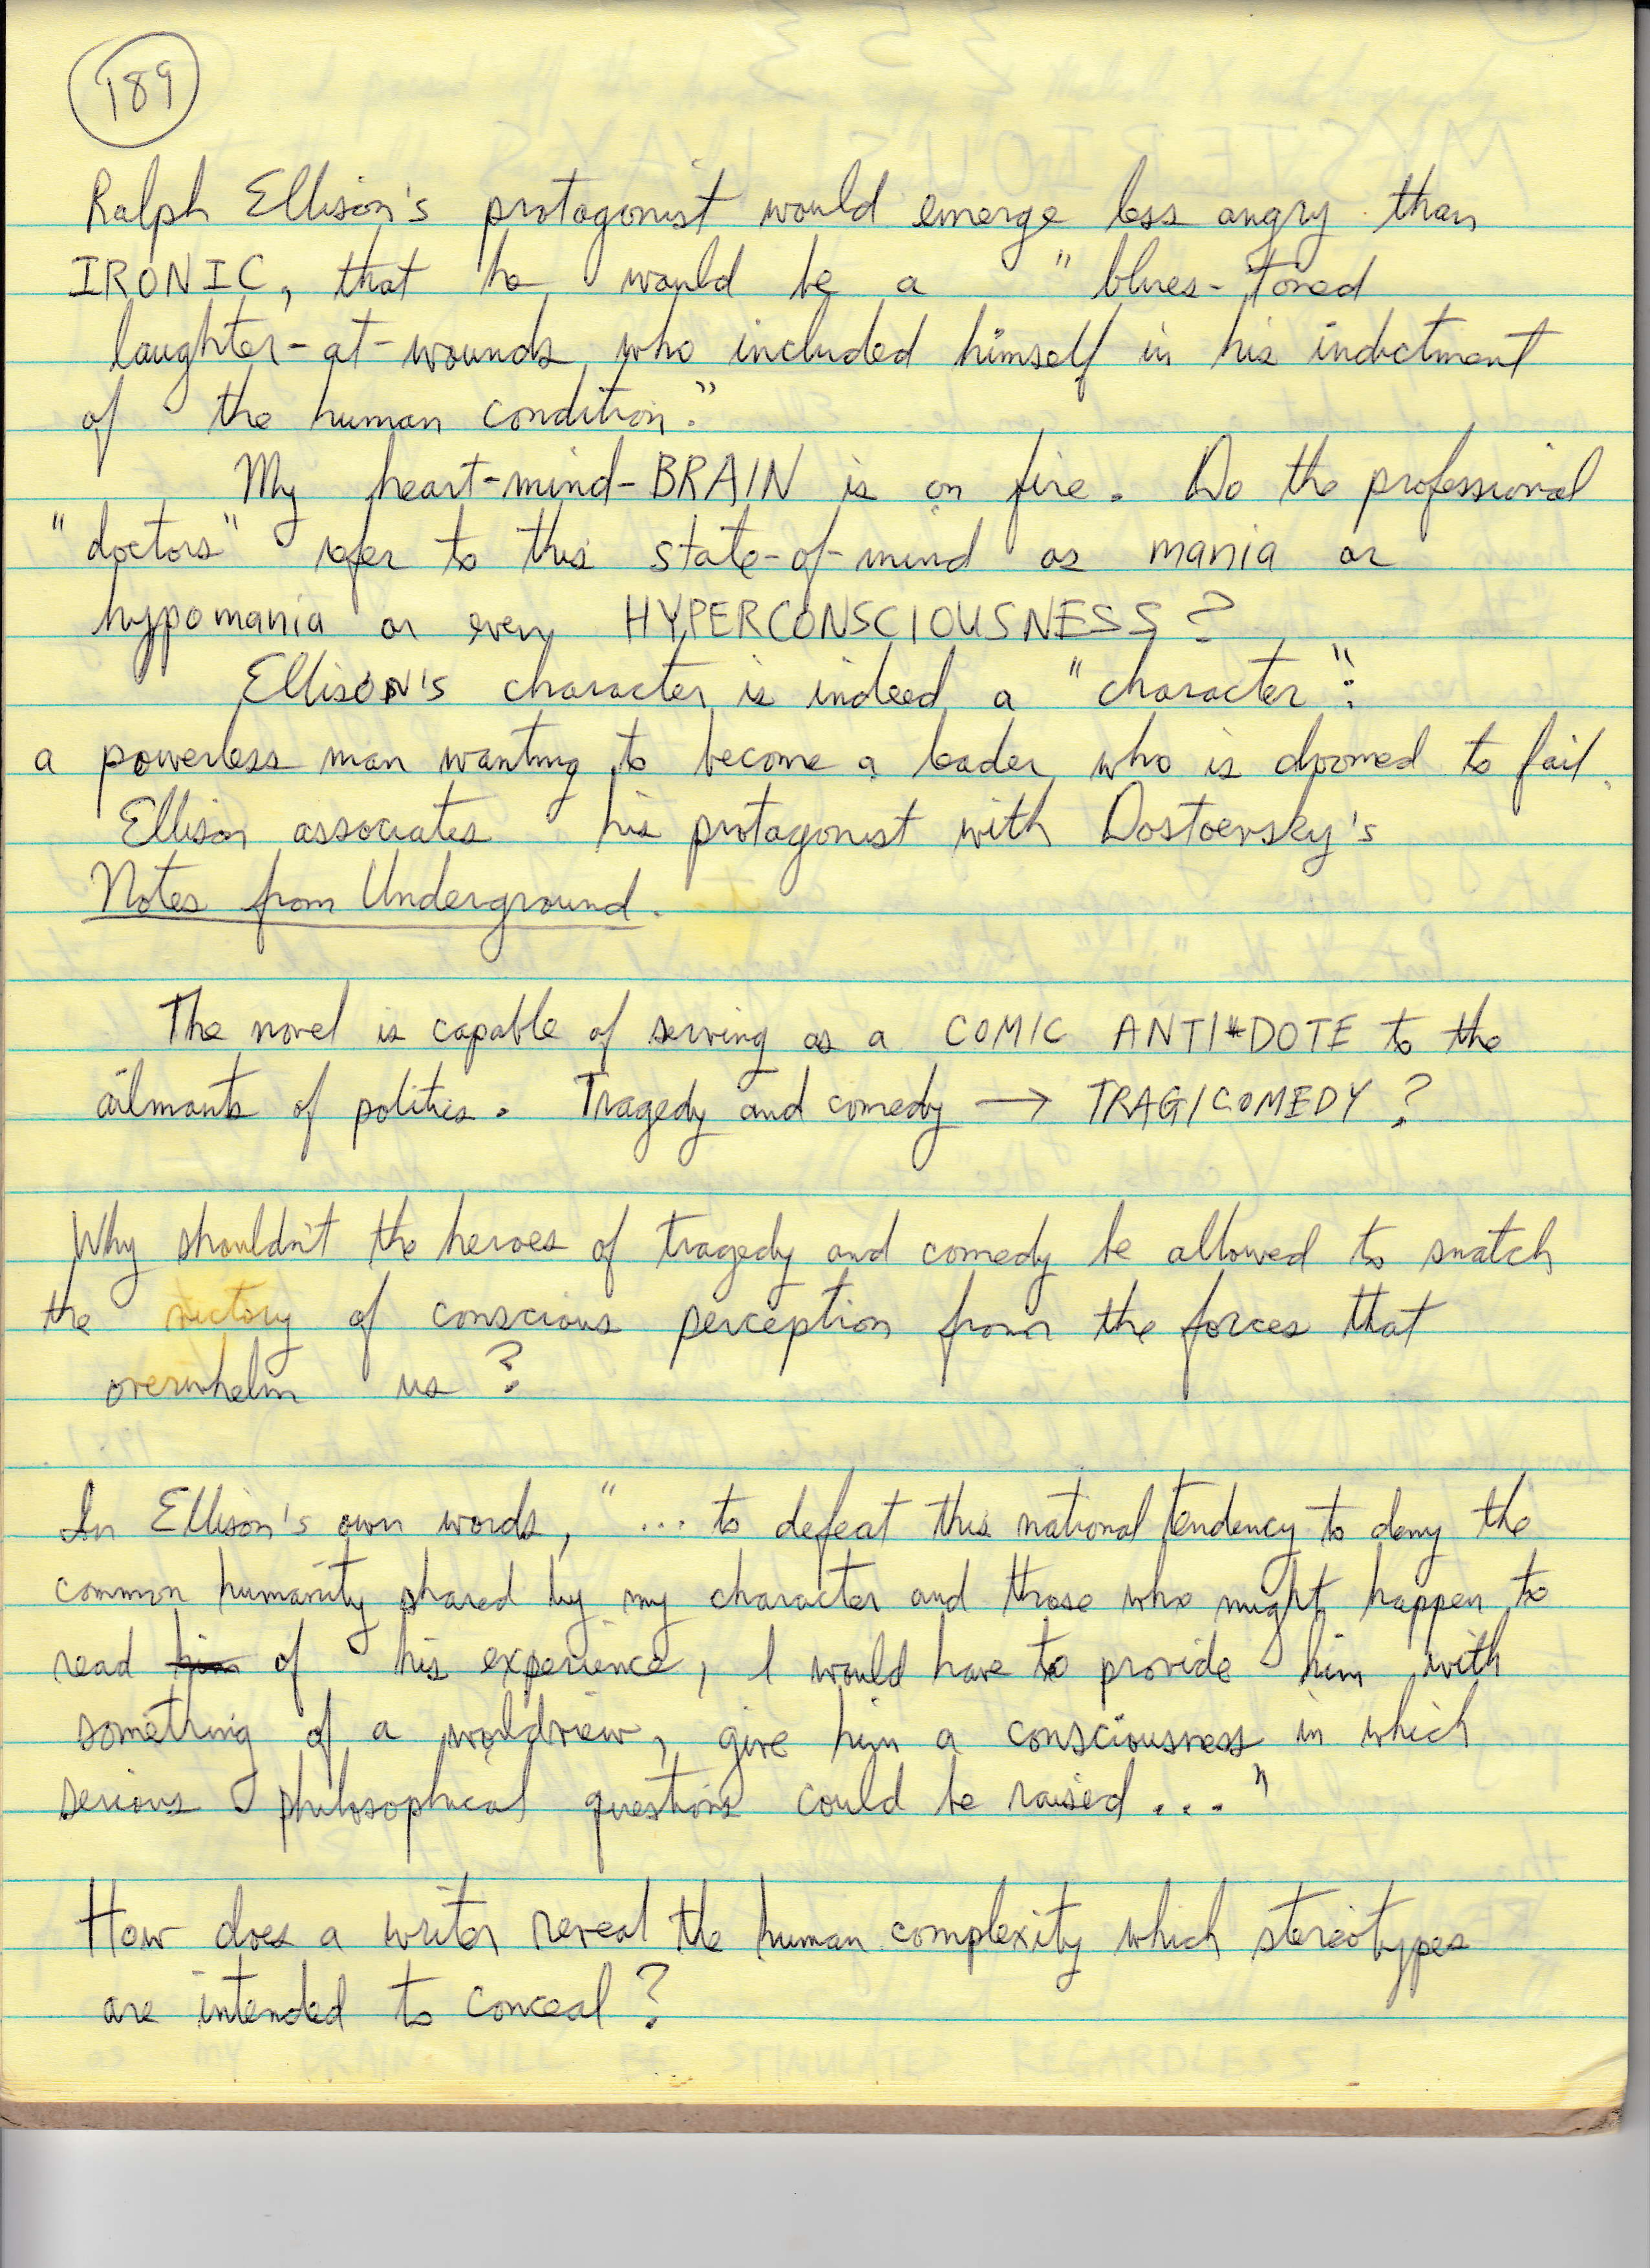 189
Ralph Ellison's protagonist would emerge less angry than
IRONIC, that he would be a "blues-toned
laughter-at-wounds who included himself in his indictment
of the human condition."
My heart-mind-BRAIN is on fire. Do the professional
"doctors" refer to this state-of-mind as mania or
hypomania or even HYPERCONSCIOUSNESS?
EllisoN's character is indeed a "character":
a powerless man wanting to become a leader who is doomed to fail.
Ellison associates his protagonist with Dostoevsky's
Notes from Underground.
The novel is capable of serving as a COMIC ANTI*DOTE to the
ailments of politics. Tragedy and comedy → TRAGICOMEDY?
Why shouldn't the heroes of tragedy and comedy be allowed to snatch
the victory of conscious perception from the forces that
overwhelm us?
In Ellison's own words, "... to defeat this national tendency to deny the
common humanity shared by my character and those who might happen to
read him of his experience, I would have to provide him with
something of a worldview, give him a consciousness in which
serious philosophical questions could be raised..."
How does a writer reveal the human complexity which stereotypes
are intended to conceal?
as MY BRAIN WILL BE STIMULATED REGARDLESS!